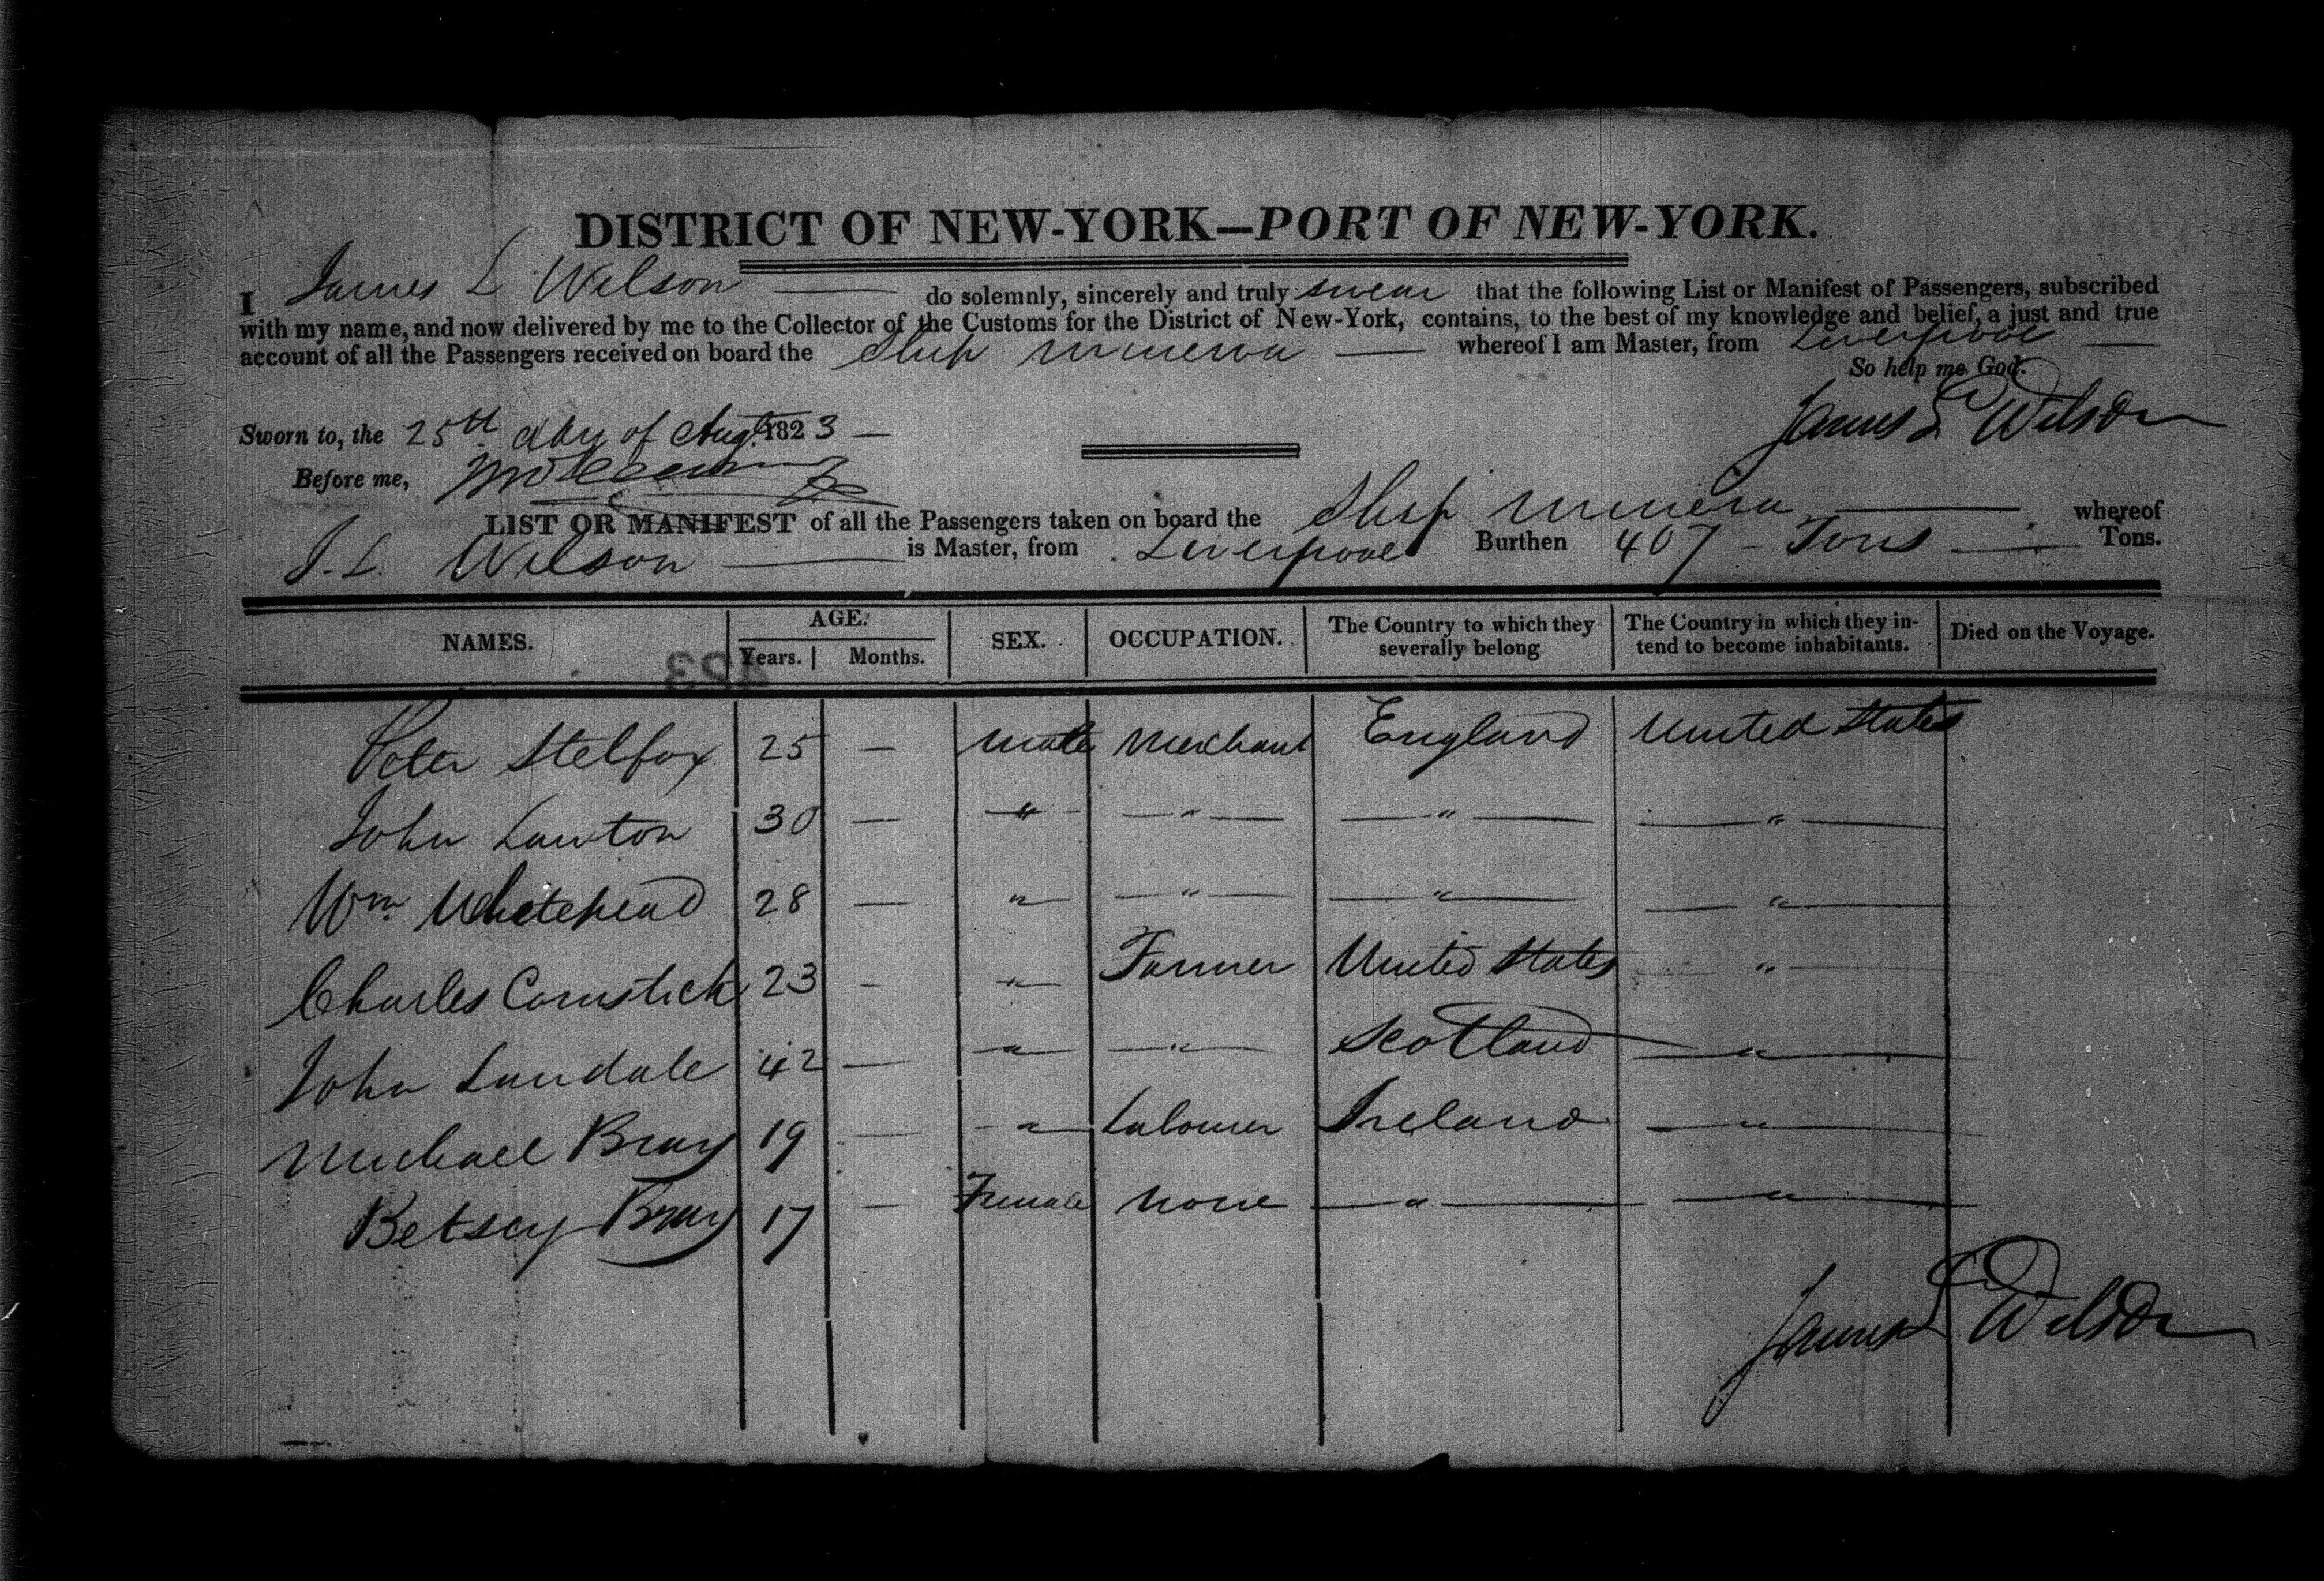 DISTRICT OF NEW-YORK—PORT OF NEW-YORK.
I James L Wilson — do solemnly, sincerely and truly swear that the following List or Manifest of Passengers, subscribed
with my name, and now delivered by me to the Collector of the Customs for the District of New-York, contains, to the best of my knowledge and belief, a just and true
account of all the Passengers received on board the Ship Minerva — whereof I am Master, from Liverpool —
So help me God.
James L Wilson
Sworn to, the 25th day of Augt. 1823 —
Before me,
LIST OR MANIFEST of all the Passengers taken on board the Ship Minerva — whereof
J. L. Wilson — is Master, from Liverpool Burthen 407 — Tons — Tons.
NAMES. AGE: SEX. OCCUPATION. The Country to which they severally belong The Country in which they intend to become inhabitants. Died on the Voyage.
Years. Months.
423
Peter Stelfox 25 — Male Merchant England United States
John Lawton 30 — " — " — — " — — " —
Wm Whitehead 28 — " — " — — " — — " —
Charles Comstick 23 — " Farmer United States " —
John Landale 42 — " — " — Scotland — " —
Michael Bray 19 — " Labourer Ireland — " —
Betsey Bray 17 — Female None — " — — " —
James L Wilson